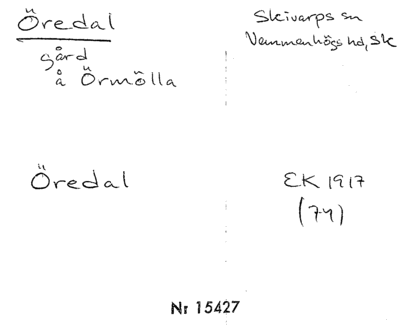 Öredal
gård
å Örmölla
Skivarps sn
Vemmenhögs hd, Sk
Öredal
EK 1917
(74)
Nr 15427